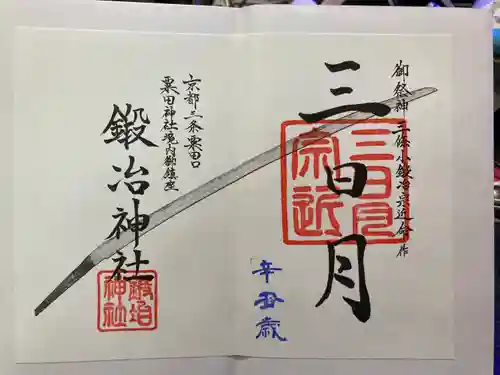 御祭神 三條小鍛冶宗近命作
三日月
三日月
宗近
辛丑歳
京都三条粟田口
粟田神社境内御鎮座
鍛冶神社
鍛冶
神社